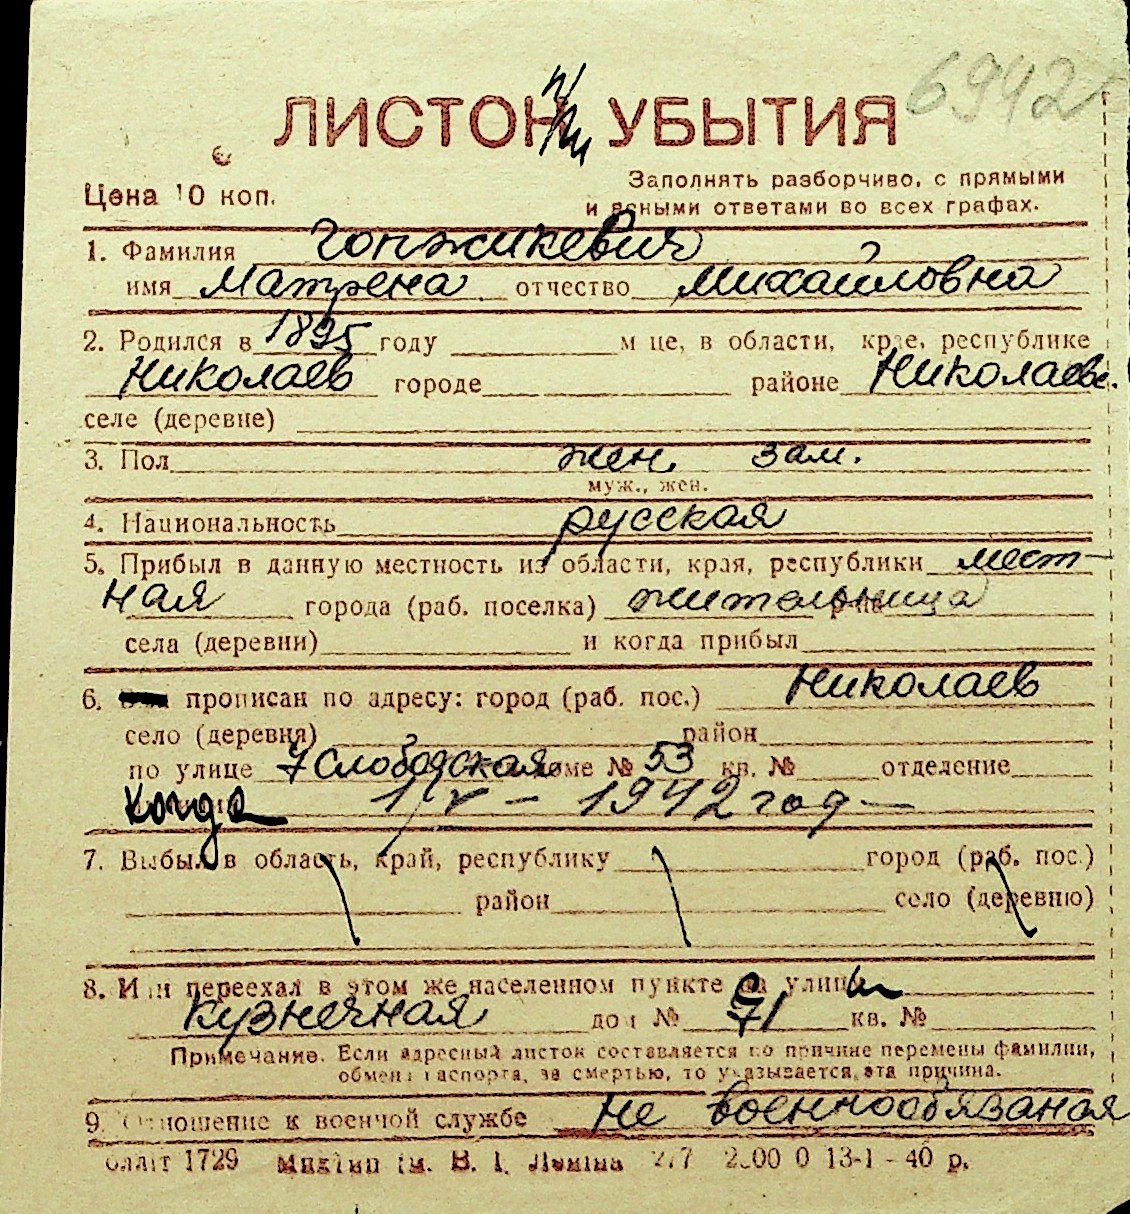 6942
ЛИСТОК УБЫТИЯ
Цена 10 коп.
Заполнять разборчиво, с прямыми
и ясными ответами во всех графах.
1. Фамилия Гонжикевич
имя Матрена отчество Михайловна
2. Родился в 1895 году м це, в области, крае, республике
Николаев городе районе Николаевс.
селе (деревне)
3. Пол жен. зам.
муж., жен.
4. Национальность русская
5. Прибыл в данную местность из области, края, республики мест-
ная города (раб. поселка) жительница
села (деревни) и когда прибыл
6. прописан по адресу: город (раб. пос.) Николаев
село (деревня) район
по улице 7 Слободская доме № 53 кв. № отделение
Когда 1/V - 1942 год
7. Выбыл в область, край, республику город (раб. пос.)
район село (деревню)
8. Или переехал в этом же населенном пункте на улицу
Кузнечная дом № 71 кв. №
Примечание. Если адресный листок составляется по причине перемены фамилии,
обмена паспорта, за смертью, то указывается эта причина.
9. Отношение к военной службе не военнообязаная
1729 ім. В. І. Леніна 13-І - 40 р.